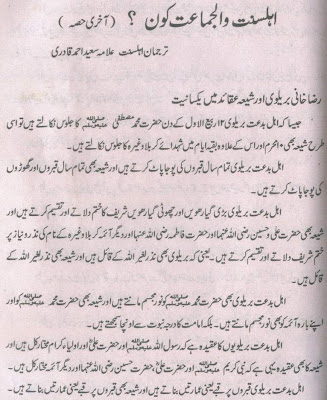 اہلسنت والجماعت کون ؟ ( آخری حصہ )
ترجمان اہلسنت علامہ سعید احمد قادری
رضاخانی بریلوی اور شیعہ عقائد میں یکسانیت
جیسا کہ اہل بدعت بریلوی ۱۲ ربیع الاول کے دن حضرت محمد مصطفی ﷺ کا جلوس نکالتے ہیں تو اسی
طرح شیعہ بھی ۱۰محرم اور اس کے علاوہ بقیہ ایام میں شہدائے کربلا وغیرہ کا جلوس نکالتے ہیں۔
اہل بدعت بریلوی بھی تمام سال قبروں کی پوجا پاٹ کرتے ہیں اور شیعہ بھی تمام سال قبروں اور گھوڑوں
کی پوجا پاٹ کرتے ہیں۔
اہل بدعت بریلوی بڑی گیارھویں اور چھوٹی گیارھویں شریف کا ختم دلاتے اور تقسیم کرتے ہیں اور
شیعہ بھی حضرت علی و حسین رضی اللہ عنہما اور حضرت فاطمہ رضی اللہ عنہا اور دیگر آئمہ کربلا وغیرہ کے نام کی نذر و نیاز پر
ختم دلاتے اور تقسیم کرتے ہیں۔ یعنی کہ بریلوی بھی نذر لغیر اللہ کے قائل ہیں اور شیعہ بھی نذر لغیر اللہ کے
قائل ہیں۔
اہل بدعت بریلوی بھی حضرت محمد ﷺ کو نور مجسم مانتے ہیں اور شیعہ بھی حضرت محمد ﷺ کو اور
اپنے بارہ آئمہ کو بھی نور مجسم مانتے ہیں۔ بلکہ امامت کا درجہ نبوت سے اونچا سمجھتے ہیں۔
اہل بدعت بریلویوں کا عقیدہ ہے کہ رسول اللہ ﷺ اور علی رضی اللہ عنہ اور اولیاء کرام مختار کل ہیں اور
شیعہ کا بھی عقیدہ یہی ہے کہ نبی کریم ﷺ اور علی رضی اللہ عنہ اور حضرت حسین رضی اللہ عنہا اور دیگر آئمہ مختار کل ہیں۔
اہل بدعت بریلوی بھی قبروں پر قبے یعنی عمارتیں بناتے ہیں اور شیعہ بھی قبروں پر قبے یعنی عمارتیں بناتے ہیں۔